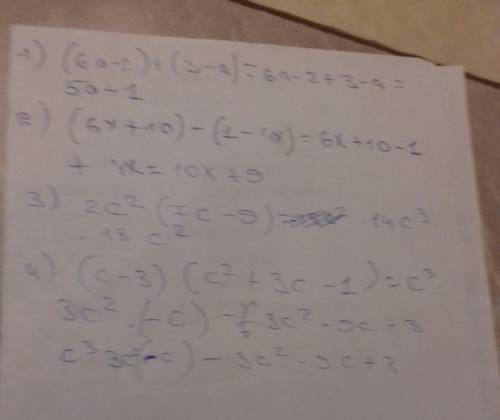 1) (6a-2)+(3-a)=6a-2+3-a=
5a-1
2) (6x+10)-(1-4x)=6x+10-1
+ 4x=10x+9
3) 2c² (7c-9)= 14c³.
.18 c²
4) (c-3) (c²+3c-1)=c³.
3c² .(-c) - 3c²-9c+3
c³ 3c²(-c) - 3c²-9c+3